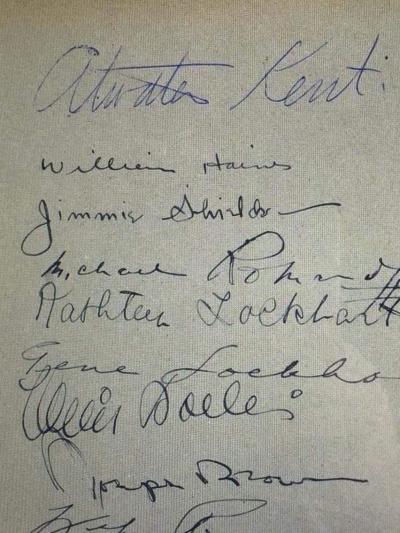 Atwater Kent.
William Haines
Jimmie Shields
Michael Romanoff
Kathleen Lockhart
Gene Lockha
Joseph